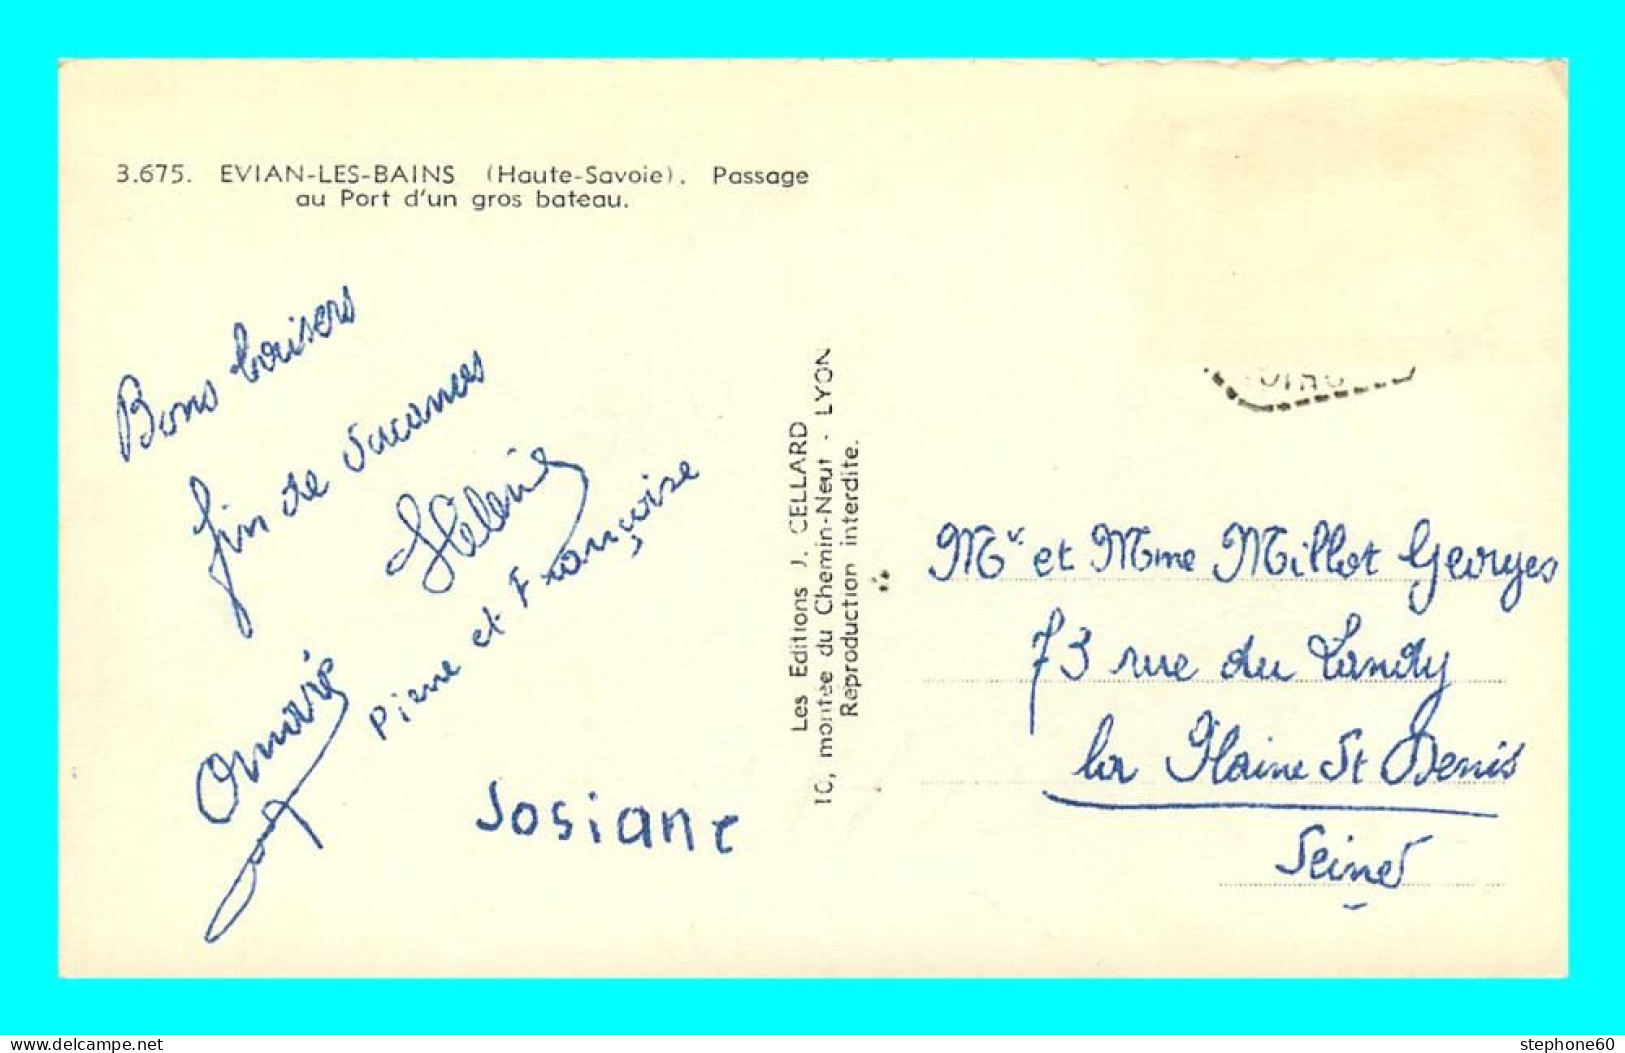 3.675. EVIAN-LES-BAINS (Haute-Savoie). Passage
au Port d'un gros bateau.
Bons baisers
fin de vacances
Hélène
Pierre et Françoise
Josiane
Les Editions J. CELLARD
10, montée du Chemin-Neuf - LYON
Reproduction interdite.
Mr et Mme Millot Georges
73 rue du Landy
la Plaine St Denis
Seine
delcampe.net
stephone60